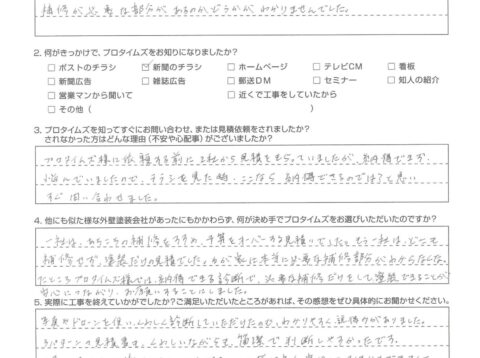 補修が必要な部分があるのかどうかがわかりませんでした。
2. 何がきっかけで、プロタイムズをお知りになりましたか?
□ ポストのチラシ ☑ 新聞のチラシ □ ホームページ □ テレビCM □ 看板
□ 新聞広告 □ 雑誌広告 □ 郵送DM □ セミナー □ 知人の紹介
□ 営業マンから聞いて □ 近くで工事をしていたから
□ その他 ( )
3. プロタイムズを知ってすぐにお問い合わせ、または見積依頼をされましたか?
されなかった方はどんな理由(不安や心配事)がございましたか?
プロタイムズ様に依頼する前に2社から見積をもらっていましたが、納得できず、
悩んでいましたので、チラシを見た時、ここなら納得できるのでは?と思い
すぐ問い合わせました。
4. 他にも似た様な外壁塗装会社があったにもかかわらず、何が決め手でプロタイムズをお選びいただいたのですか?
一社は、あちこちの補修をすすめ、予算をオーバーする見積りでしたし、もう一社は、どこも
補修せず、塗装だけの見積でした。わが家に本当に必要な補修部分がわからなかった
プロタイムズ様では、納得できる診断で、必要な補修だけをして塗装できることが
安心につながり、お願いすることにしました。
5. 実際に工事を終えていかがでしたか?ご満足いただいたところがあれば、その感想をぜひ具体的にお聞かせください。
写真やドローンを使い、くわしく診断していただけたので、わかりやすく説得力がありました。
3パターンの見積書も、くわしいながらも、簡潔で判断しやすかったです。